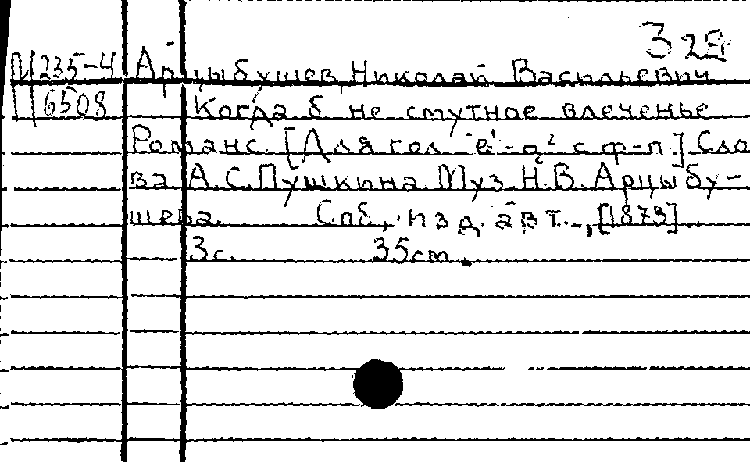 329
П 235-4 Арцыбушев, Николай Васильевич
6508 Когда б не смутное влеченье
Романс. [Для гол. e¹-g² с ф-п.] Сло
ва А.С. Пушкина. Муз. Н.В. Арцыбу-
шева. Спб, изд. авт., [1873].
3с. 35см.